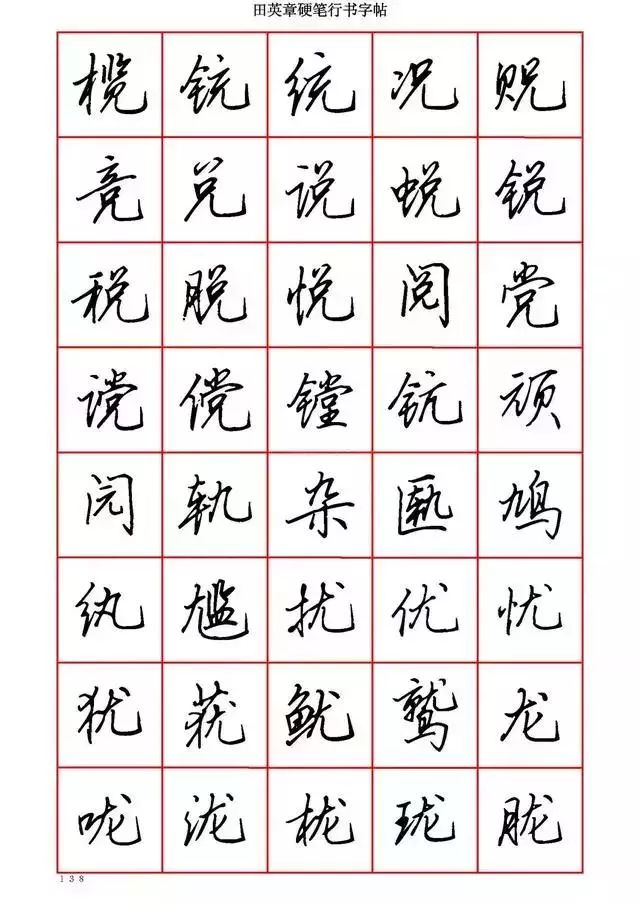 田英章硬笔行书字帖
榄 铳 统 况 贶
竞 兑 说 蜕 锐
税 脱 悦 阅 党
谠 傥 镗 钪 顽
阮 轨 杂 匦 鸠
纨 尴 扰 优 忧
犹 莸 鱿 鹫 龙
咙 泷 栊 珑 胧
138